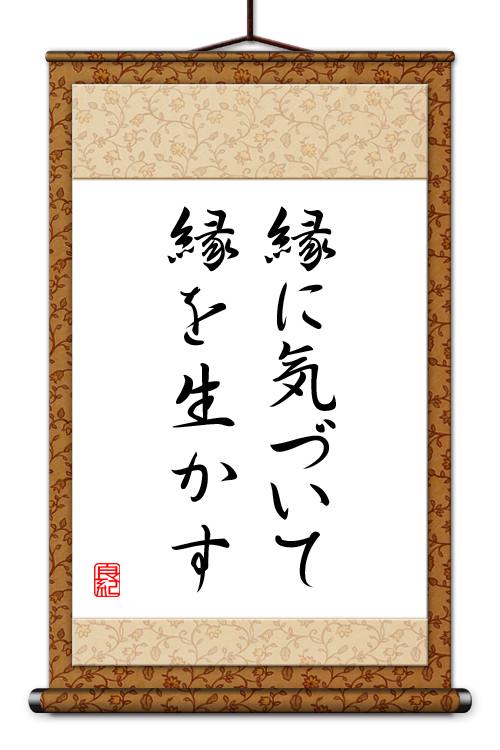 縁に気づいて
縁を生かす
良紀